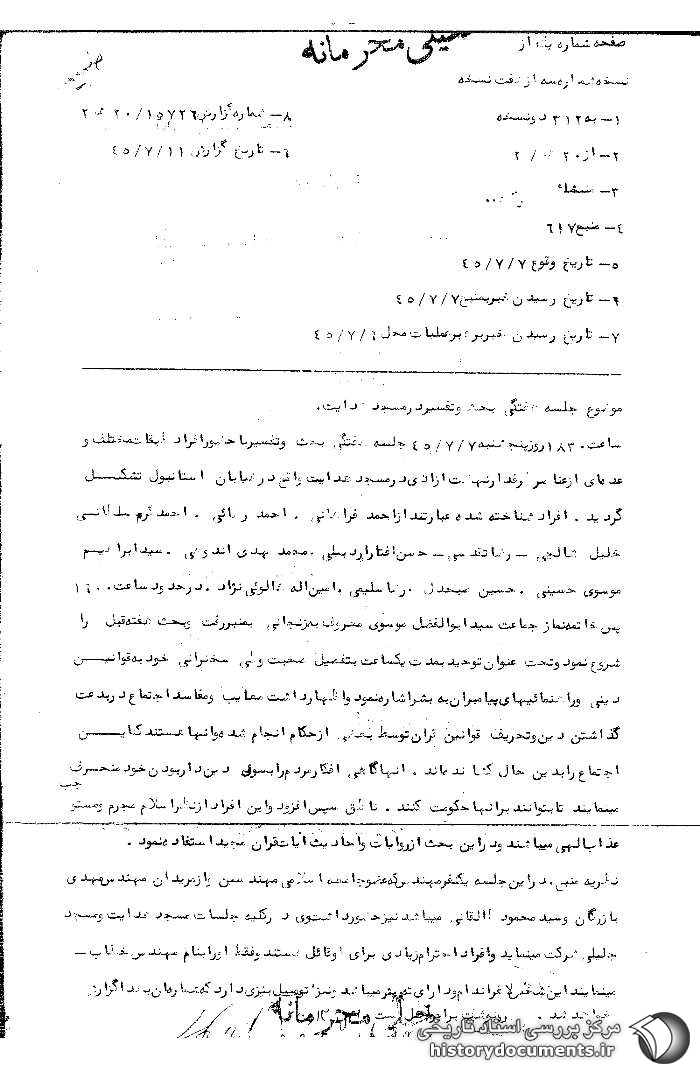 خیلی محرمانه
صفحه شماره یک از
نسخه شماره سه از هفت نسخه
۱- به ۳۱۲ دو نسخه
۸- شماره گزارش ۲۰/۱۵۷۲۶ ه ۲
۲- از ۲۰ ه / ۲
۹- تاریخ گزارش ۴۵/۷/۱۱
۳-
۴- منبع ۶۱۷
۵- تاریخ وقوع ۴۵/۷/۷
۶- تاریخ رسیدن خبر بمنبع ۴۵/۷/۷
۷- تاریخ رسیدن خبر برهبر عملیات محل ۴۵/۷/۹
موضوع جلسه هفتگی بحث و تفسیر در مسجد هدایت.
ساعت ۱۸۳۰ روز پنجشنبه ۴۵/۷/۷ جلسه هفتگی بحث و تفسیر با حضور افراد طبقات مختلف و
عده‌ای از عناصر طرفدار نهضت آزادی در مسجد هدایت واقع در خیابان استانبول تشکیل
گردید . افراد شناخته شده عبارتند از احمد فراهانی . احمد . احمد کرم سلطانی
خلیل - رضا تقدسی - حسن افتخار اردبیلی . محمد مهدی . سید ابراهیم
موسوی حسینی . حسین صیحدل . رضا سلیمی . امین‌اله نژاد . در حدود ساعت
پس خاتمه نماز جماعت سید ابوالفضل موسوی معروف به زنجانی بمنبر رفت و بحث هفته قبل را
شروع نمود و تحت عنوان توحید بمدت یکساعت بتفصیل صحبت و طی سخنرانی خود به قوانین
دینی و راهنمائیهای پیامبران به بشر اشاره نمود و اظهار داشت معایب و مفاسد اجتماع در بدعت
گذاشتن دین و تحریف قوانین قران توسط بعضی از حکام انجام شده و آنها هستند که این
اجتماع را بدین حال کشانده‌اند . انها گاهی افکار مردم را بسوی دین دار بودن خود منحرف
مینمایند تا بتوانند بر آنها حکومت کنند . ناطق سپس افزود و این افراد از نظر اسلام مجرم و مستوجب
عذاب الهی میباشند و در این بحث از روایات و احادیث آیات قران مجید استفاده نمود .
نظریه منبع . در این جلسه یکنفر مهندس که عضو جامعه اسلامی مهندسین و از مریدان مهندس مهدی
بازرگان و سید محمود طالقانی میباشد نیز حضور داشت وی در کلیه جلسات مسجد هدایت و مسجد
جلیلی شرکت مینماید و افراد احترام زیادی برای او قائل هستند و فقط او را بنام مهندس خطاب -
مینمایند این شخص لاغر اندام و دارای میباشد و نیز اتومبیل بنزی دارد که شماره آن بعدا گزارش
خواهد شد .
خیلی محرمانه
مرکز بررسی اسناد تاریخی
historydocuments.ir